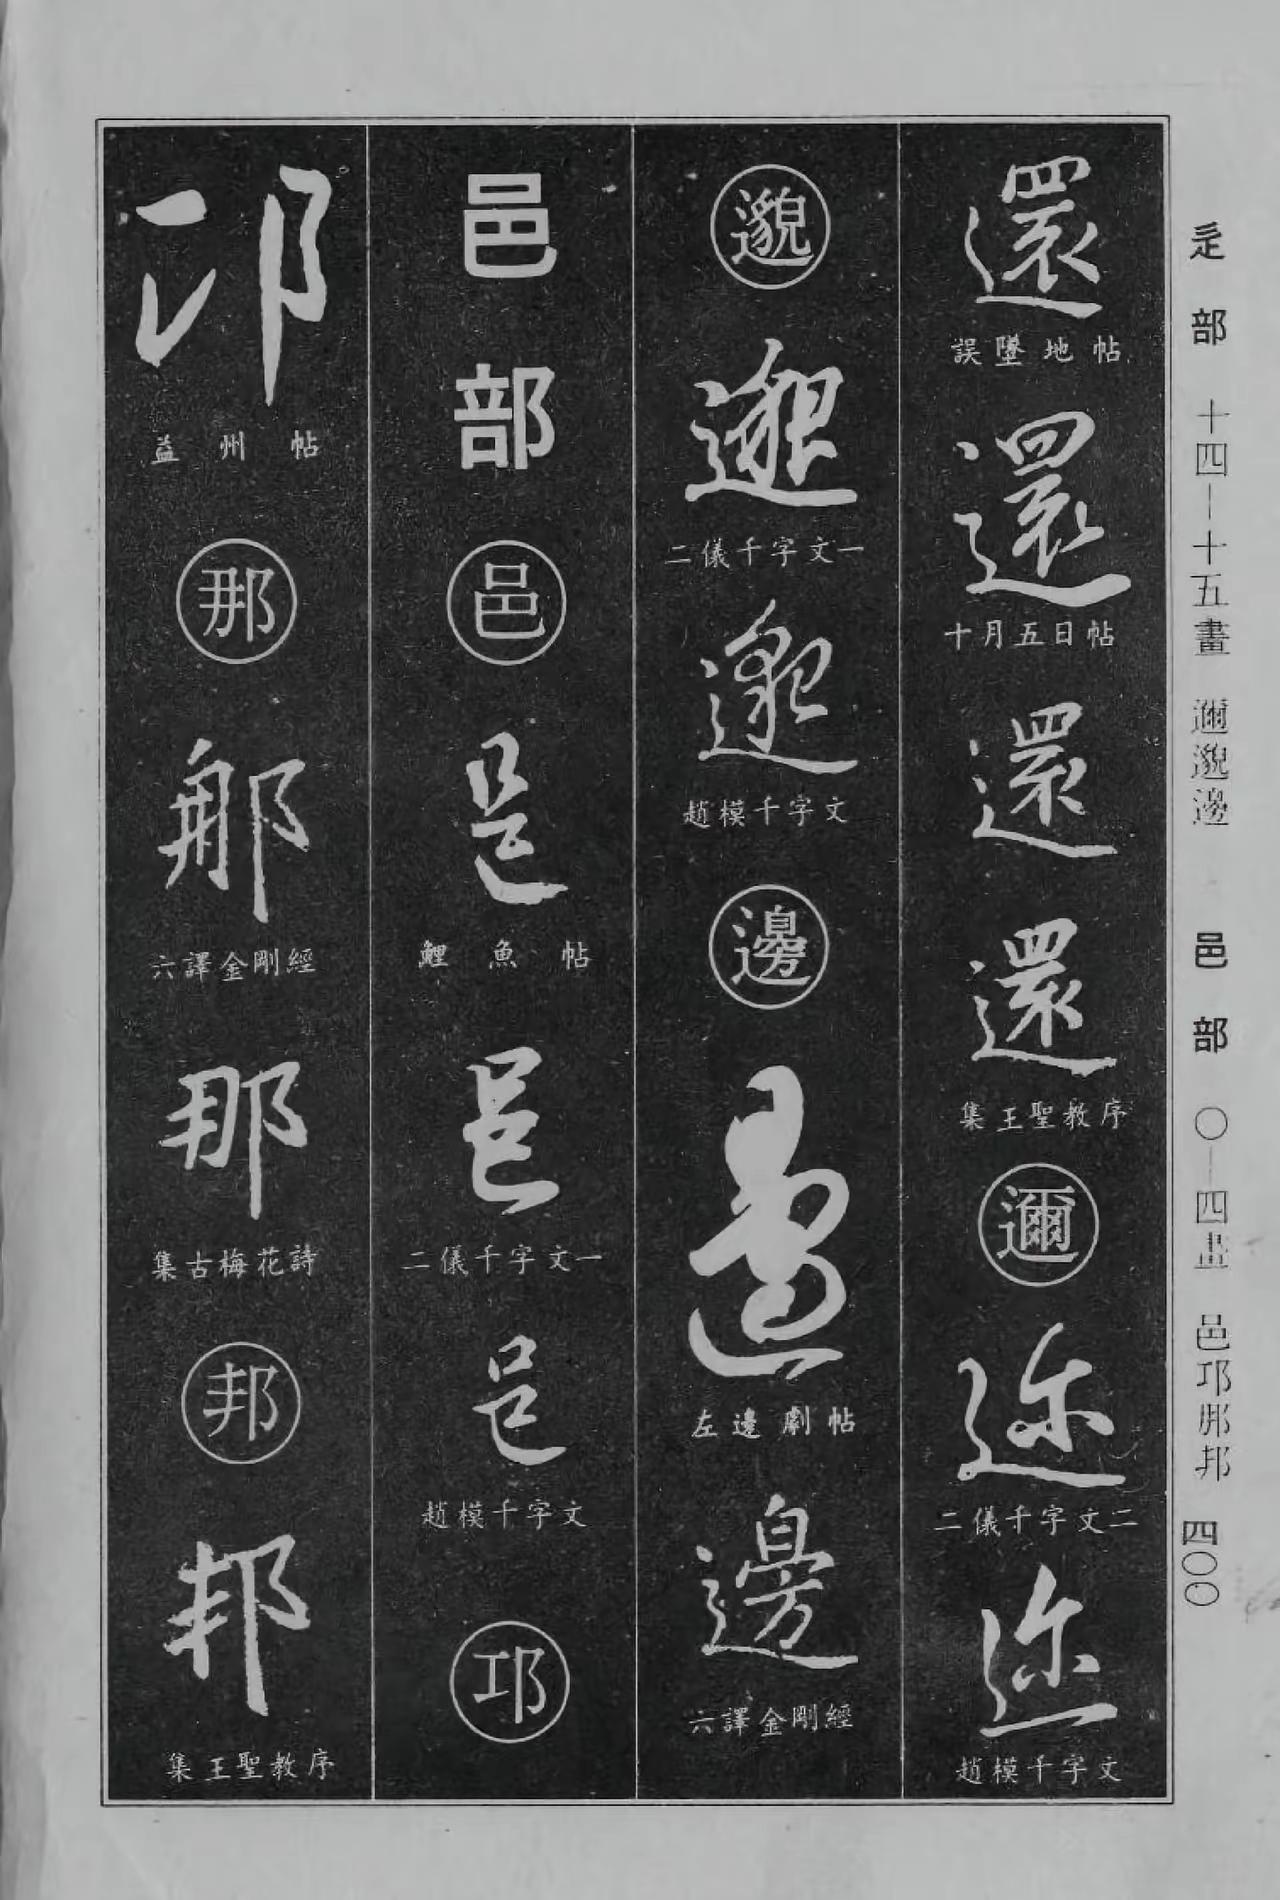 辵部 十四—十五畫 邇邈邊 邑部 〇—四畫 邑邛那邦 四〇〇
還
誤墜地帖
還
十月五日帖
還
還
集王聖教序
邇
迩
二儀千字文二
迩
趙模千字文
邈
邈
二儀千字文一
邈
趙模千字文
邊
邊
左邊劇帖
邊
六譯金剛經
邑部
邑
邑
鯉魚帖
邑
二儀千字文一
邑
趙模千字文
邛
邛
益州帖
那
那
六譯金剛經
那
集古梅花詩
邦
邦
集王聖教序